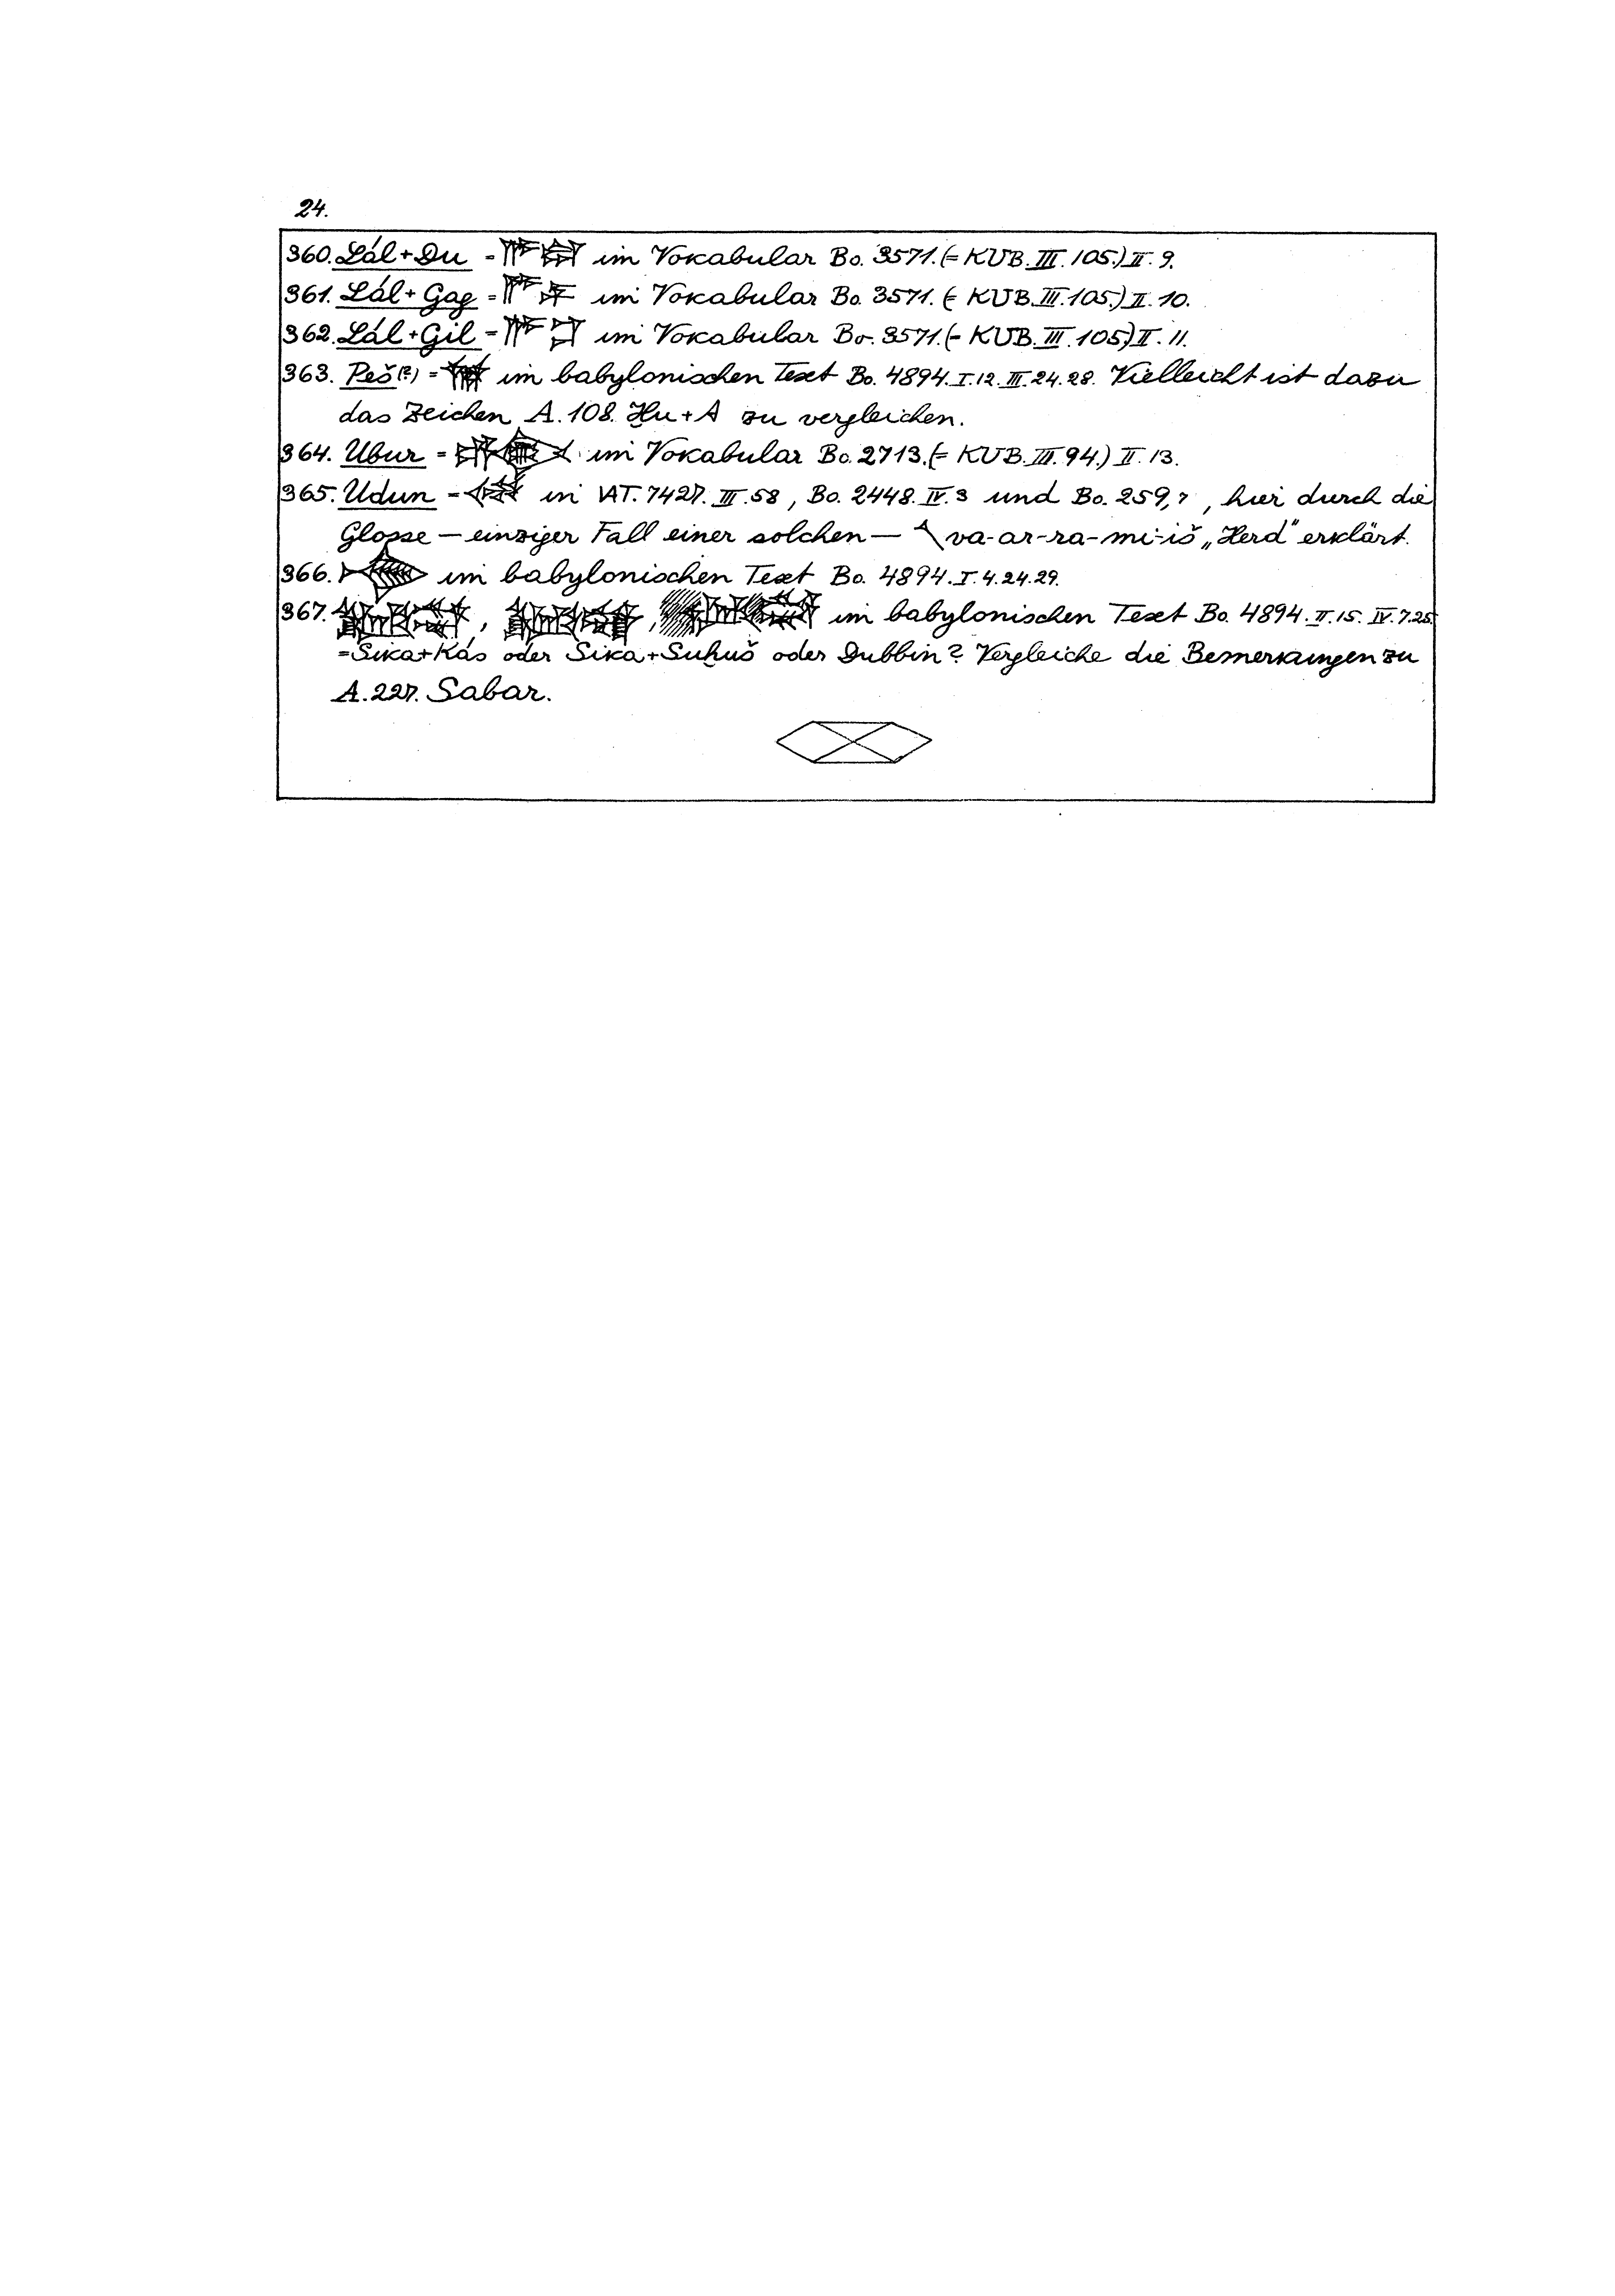 24.
360. Lál+Du = im Vokabular Bo. 3571. (= KUB. III. 105.) II. 9.
361. Lál+Gag = im Vokabular Bo. 3571. (= KUB. III. 105.) II. 10.
362. Lál+Gil = im Vokabular Bo. 3571. (= KUB. III. 105) II. 11.
363. Peš(?) = im babylonischen Text Bo. 4894. I. 12. III. 24. 28. Vielleicht ist dazu
das Zeichen A. 108. Hu+A zu vergleichen.
364. Ubur = im Vokabular Bo. 2713. (= KUB. III. 94.) II. 13.
365. Udun = in VAT. 7427. III. 58, Bo. 2448. IV. 3 und Bo. 259,7, hier durch die
Glosse — einziger Fall einer solchen — va-ar-ra-mi-iš „Herd“ erklärt.
366. im babylonischen Text Bo. 4894. I. 4. 24. 29.
367. , , im babylonischen Text Bo. 4894. II. 15. IV. 7. 25.
= Sika+Kás oder Sika+Suḫuš oder Dubbin? Vergleiche die Bemerkungen zu
A. 227. Sabar.